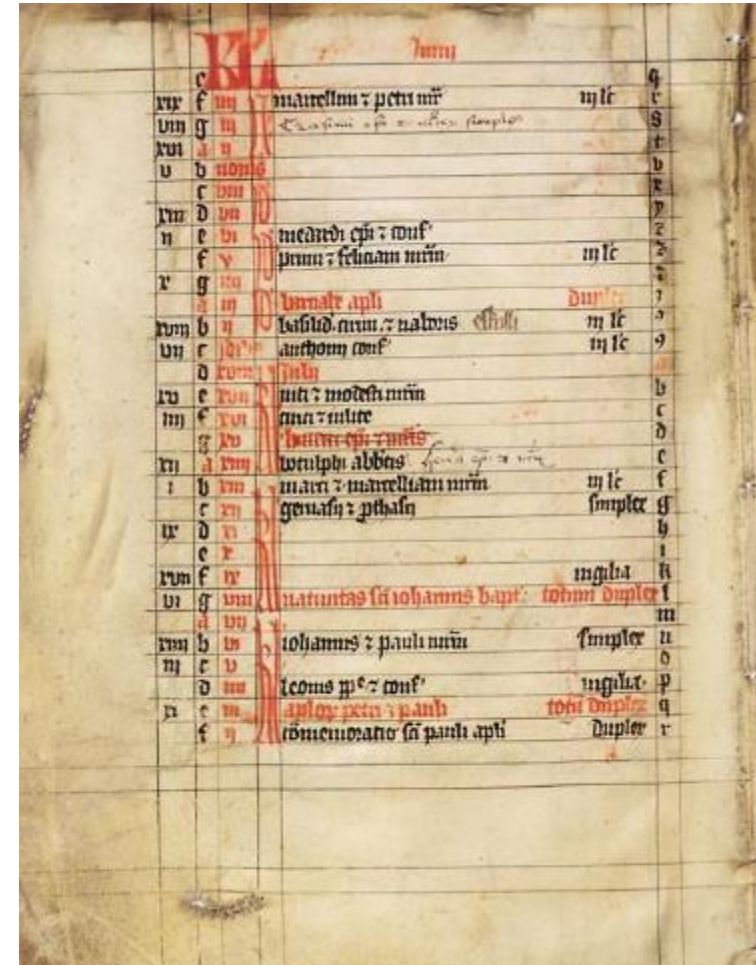 KL Junij
e q
xix f iiij marcellini ⁊ petri mr̄ iij lc̄ r
viij g iij Erasmi simplex s
xvi a ij t
v b nonas v
c viij x
xiij d vij y
ij e vi medardi ep̄i ⁊ conf' z
f v primi ⁊ feliciani mr̄m iij lc̄
x g iiij
a iij barnabe apl̄i duplex
xviij b ij basilid. cirini. ⁊ naboris iij lc̄
vij c idus anthonij conf' iij lc̄ 9
d xviij julij a
xv e xvij viti ⁊ modesti mr̄m b
iiij f xvi cirici ⁊ iulite c
g xv ep̄i ⁊ mr̄is d
xij a xiiij botulphi abb̄tis e
i b xiij marci ⁊ marcelliani mr̄m iij lc̄ f
c xij geruasij ⁊ ꝓthasij simplex g
ix d xi h
e x i
xvij f ix uigilia k
vi g viij natiuitas sc̄i iohannis bapt' totum duplex l
a vij m
xiiij b vi iohannis ⁊ pauli mr̄m simplex n
iij c v o
d iiij leonis pp̄e ⁊ conf' uigilia p
xi e iij aplōꝝ petri ⁊ pauli totū duplex q
f ij cōmemoratio sc̄i pauli apl̄i duplex r